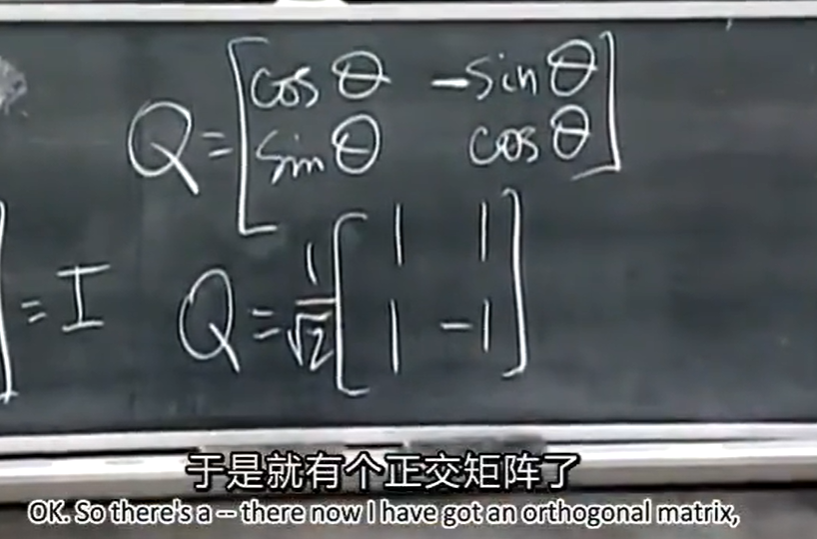 Q = [cos θ -sin θ
sin θ cos θ]
= I Q = 1/√2 [1 1
1 -1]
于是就有个正交矩阵了
OK. So there's a -- there now I have got an orthogonal matrix,